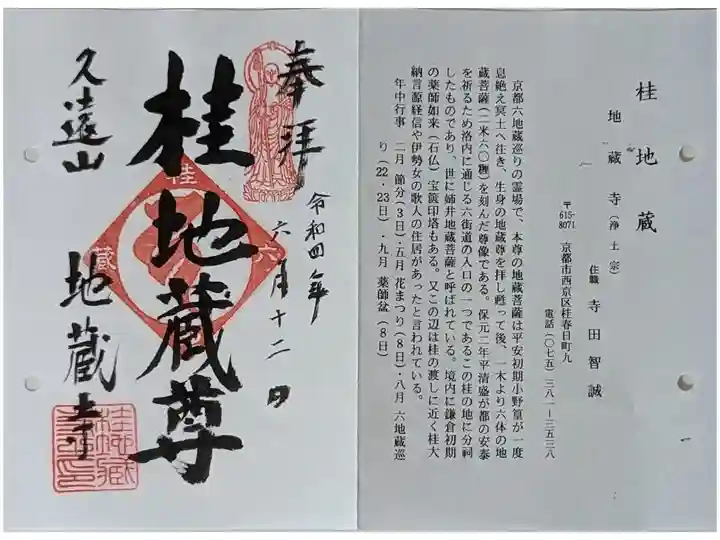 桂地蔵
地蔵寺(浄土宗)
住職 寺田智誠
〒615-8071 京都市西京区桂春日町九
電話(〇七五)三八一ー三五三八
京都六地蔵巡りの霊場で、本尊の地蔵菩薩は平安初期小野篁が一度
息絶え冥土へ往き、生身の地蔵尊を拝し甦って後、一木より六体の地
蔵菩薩(二米六〇糎)を刻んだ尊像である。保元二年平清盛が都の安泰
を祈るため洛内に通じる六街道の入口の一つであるこの桂の地に分祠
したものであり、世に姉井地蔵菩薩と呼ばれている。境内に鎌倉初期
の薬師如来(石仏)宝篋印塔もある。又この辺は桂の渡しに近く桂大
納言源経信や伊勢女の歌人の住居があったと言われている。
年中行事 二月 節分(3日)・五月 花まつり(8日)・八月 六地蔵巡
り(22・23日)・九月 薬師盆(8日)
奉拝
令和四年
六月十二日
桂地蔵尊
久遠山
地蔵寺
桂
六
蔵
桂地蔵
寺印